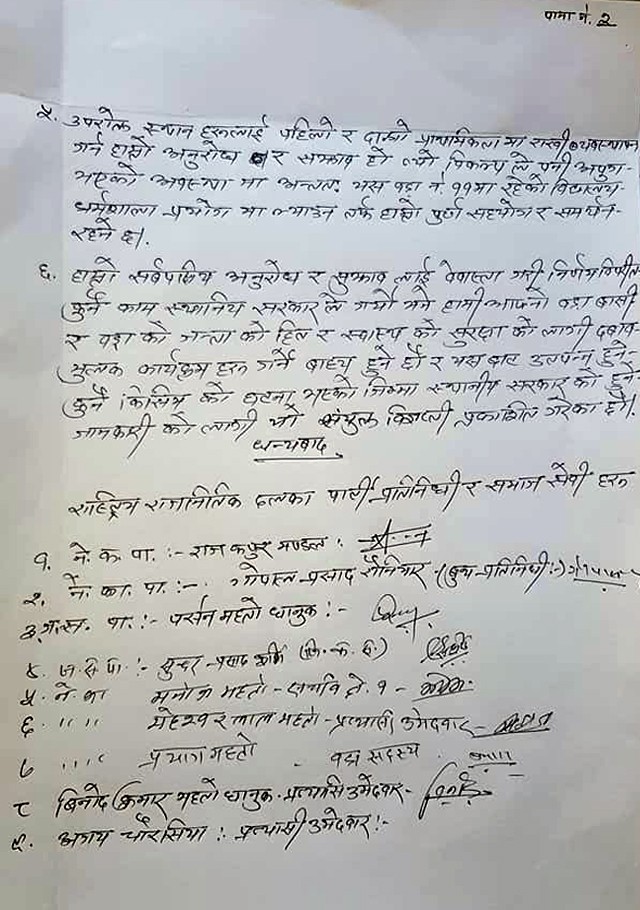 पाना नं. २
५. उपरोक्त स्थान हरुलाई पहिलो र दोस्रो प्राथमिकता मा राखी व्यवस्थापन
गर्न हाम्रो अनुरोध र सुझाव हो त्यो विकल्प ले पनी अपुग
भएको अवस्था मा अन्ततः यस वडा नं. ११मा रहेको विद्यालय
धर्मशाला प्रयोग मा ल्याउन तर्फ हाम्रो पुर्ण सहयोग र समर्थन
रहने छ।
६. हाम्रो सर्वपक्षिय अनुरोध र सुझाव लाई वेवास्ता गरी निर्णय विपरित
कुनै काम स्थानिय सरकार ले गर्यो भने हामी आफ्नो वडा बासी
र वडा को जन्ता को हित र स्वास्थ्य को सुरक्षा को लागी दबाव
मुलक कार्यक्रम हरु गर्न बाध्य हुने छौं र यस बाट उत्पन्न हुने
कुनै किसिम को घटना भएको जिम्मा स्थानीय सरकार को हुने
जानकारी को लागी यो संयुक्त विज्ञप्ती प्रकाशित गरेका छौं।
धन्यवाद
राष्ट्रिय राजनितिक दलका पार्टी प्रतिनिधी र समाज सेवी हरु
१. ने. क. पा. :- राज कपुर मण्डल :
२. ने. का. पा. :- गोपाल प्रसाद सौनियार - (युवा प्रतिनिधी :-)
३. पा. :- पर्सन महतो धानुक :-
४. ज. स. पा. :- सुन्दर प्रसाद (जि. क. स.)
५ ने. का मनोज महतो - सचिव क्षे. १ -
६ " " महेश्वर लाल महतो - प्रत्यासी उमेदवार -
७ " " प्रयाग महतो - वडा सदस्य
८ बिनोद कुमार महतो धानुक - प्रत्यासी उमेदवार -
९. अजय चौरसिया : प्रत्यासी उमेदवार :-